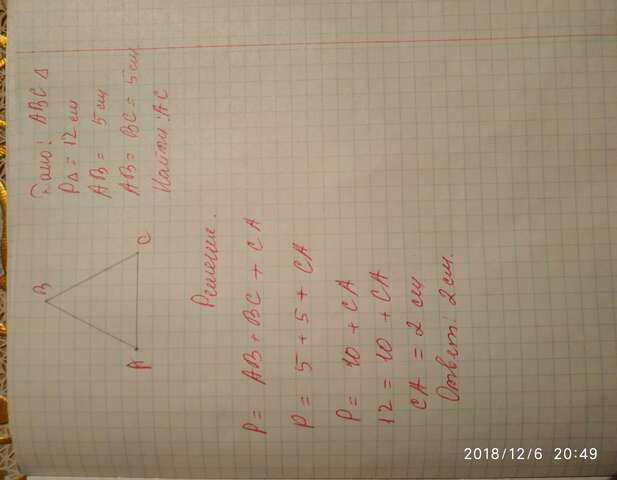 Дано: ABC Δ
PΔ = 12 см
AB = 5 см
AB = BC = 5 см
Найти: AC
B
A
C
Решение.
P = AB + BC + CA
P = 5 + 5 + CA
P = 10 + CA
12 = 10 + CA
CA = 2 см
Ответ: 2 см.
2018/12/6 20:49